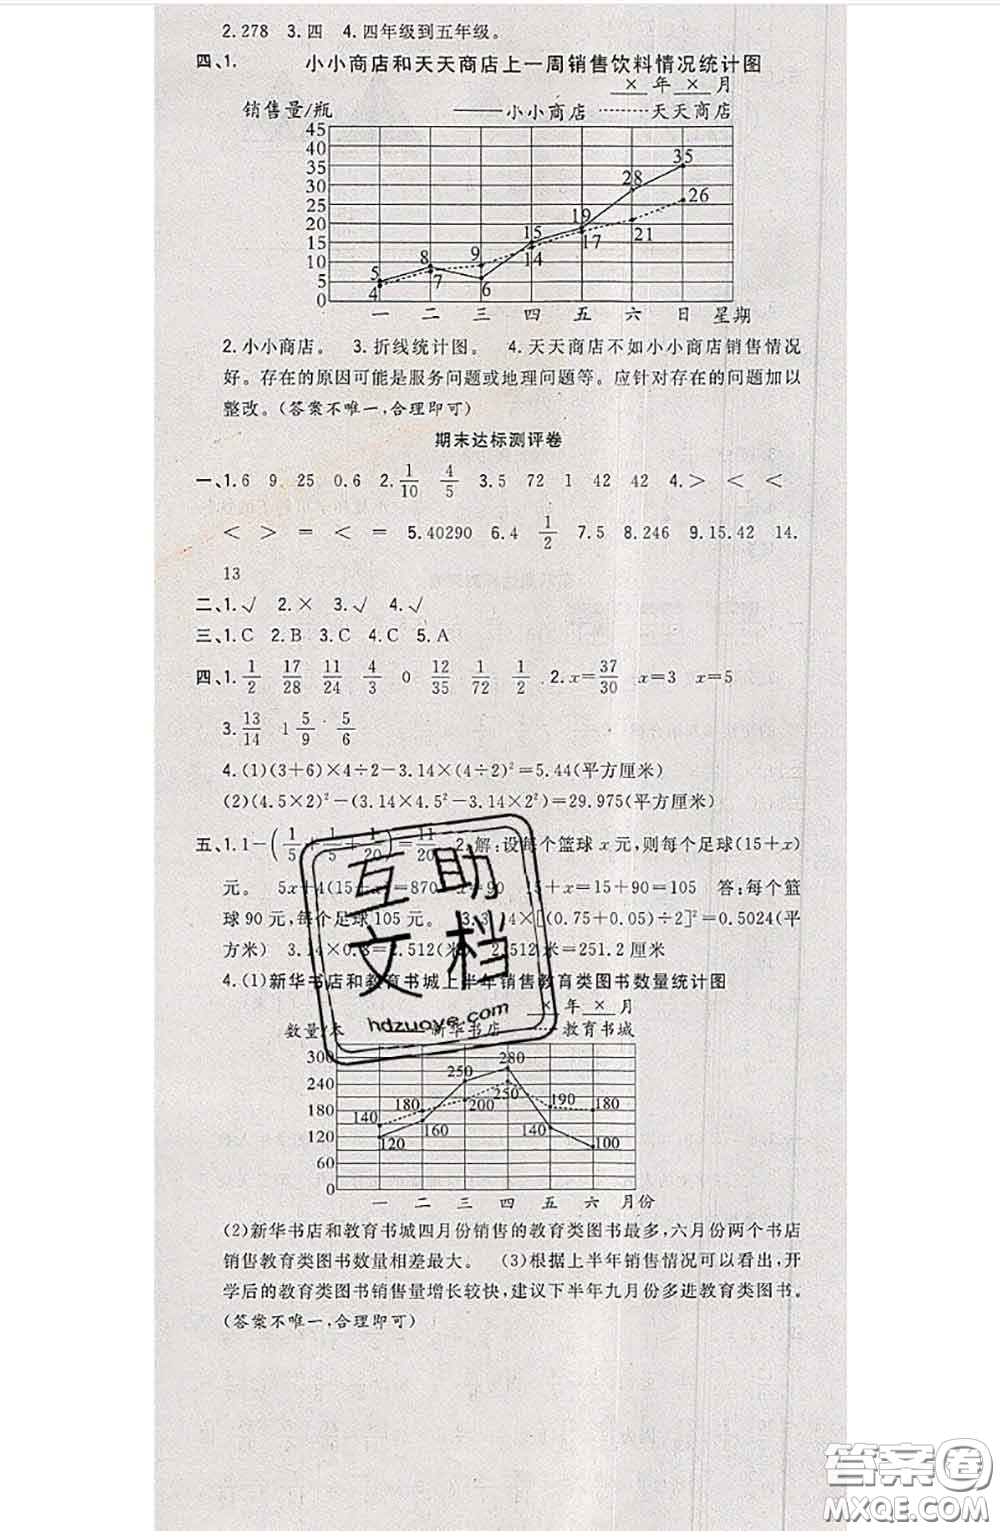 2.278 3.四 4.四年级到五年级。
四、1. 小小商店和天天商店上一周销售饮料情况统计图
×年×月
销售量/瓶 小小商店 天天商店
45
40
35
30
25
20
15
10
5
0
5 8 9 15 19 28 35
4 7 6 14 17 21 26
一 二 三 四 五 六 日 星期
2.小小商店。 3.折线统计图。 4.天天商店不如小小商店销售情况
好。存在的原因可能是服务问题或地理问题等。应针对存在的问题加以
整改。(答案不唯一,合理即可)
期末达标测评卷
一、1.6 9 25 0.6 2. 1/10 4/5 3.5 72 1 42 42 4.> < <
< > = < = 5.40290 6.4 1/2 7.5 8.246 9.15.42 14.
13
二、1.√ 2.× 3.√ 4.√
三、1.C 2.B 3.C 4.C 5.A
四、1. 1/2 17/28 11/24 4/3 0 12/35 1/72 1/2 2.x=37/30 x=3 x=5
3. 13/14 1 5/9 5/6
4.(1)(3+6)×4÷2-3.14×(4÷2)²=5.44(平方厘米)
(2)(4.5×2)²-(3.14×4.5²-3.14×2²)=29.975(平方厘米)
五、1.1-(1/5+1/5+1/20)=11/20 2.解:设每个篮球x元,则每个足球(15+x)
元。 5x+4(15+x)=870 x=90 15+x=15+90=105 答:每个篮
球90元,每个足球105元。 3.3.14×[(0.75+0.05)÷2]²=0.5024(平
方米) 3.14×0.8=2.512(米) 2.512米=251.2厘米
4.(1)新华书店和教育书城上半年销售教育类图书数量统计图
×年×月
数量/本 新华书店 教育书城
300
240
180
120
60
0
140 180 250 280 190 180
120 160 200 250 140 100
一 二 三 四 五 六 月份
(2)新华书店和教育书城四月份销售的教育类图书最多,六月份两个书店
销售教育类图书数量相差最大。 (3)根据上半年销售情况可以看出,开
学后的教育类图书销售量增长较快,建议下半年九月份多进教育类图书。
(答案不唯一,合理即可)
互助
文档
hdzuoye.com
答案卷
MXQE.COM